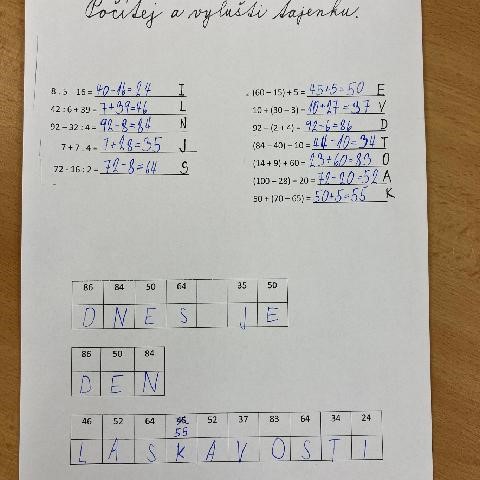 Počítej a vylušti tajenku.
8 . 5 – 16 = 40-16=24 I
42 : 6 + 39 = 7+39=46 L
92 – 32 : 4 = 92-8=84 N
7 + 7 . 4 = 7+28=35 J
72 - 16 : 2 = 72-8=64 S
(60 – 15) + 5 = 45+5=50 E
10 + (30 – 3) = 10+27=37 V
92 – (2 + 4) = 92-6=86 D
(84 – 40) – 10 = 44-10=34 T
(14 + 9) + 60 = 23+60=83 O
(100 – 28) – 20 = 72-20=52 A
50 + (70 – 65) = 50+5=55 K
86 84 50 64 35 50
D N E S J E
86 50 84
D E N
46 52 64 46 52 37 83 64 34 24
55
L A S K A V O S T I